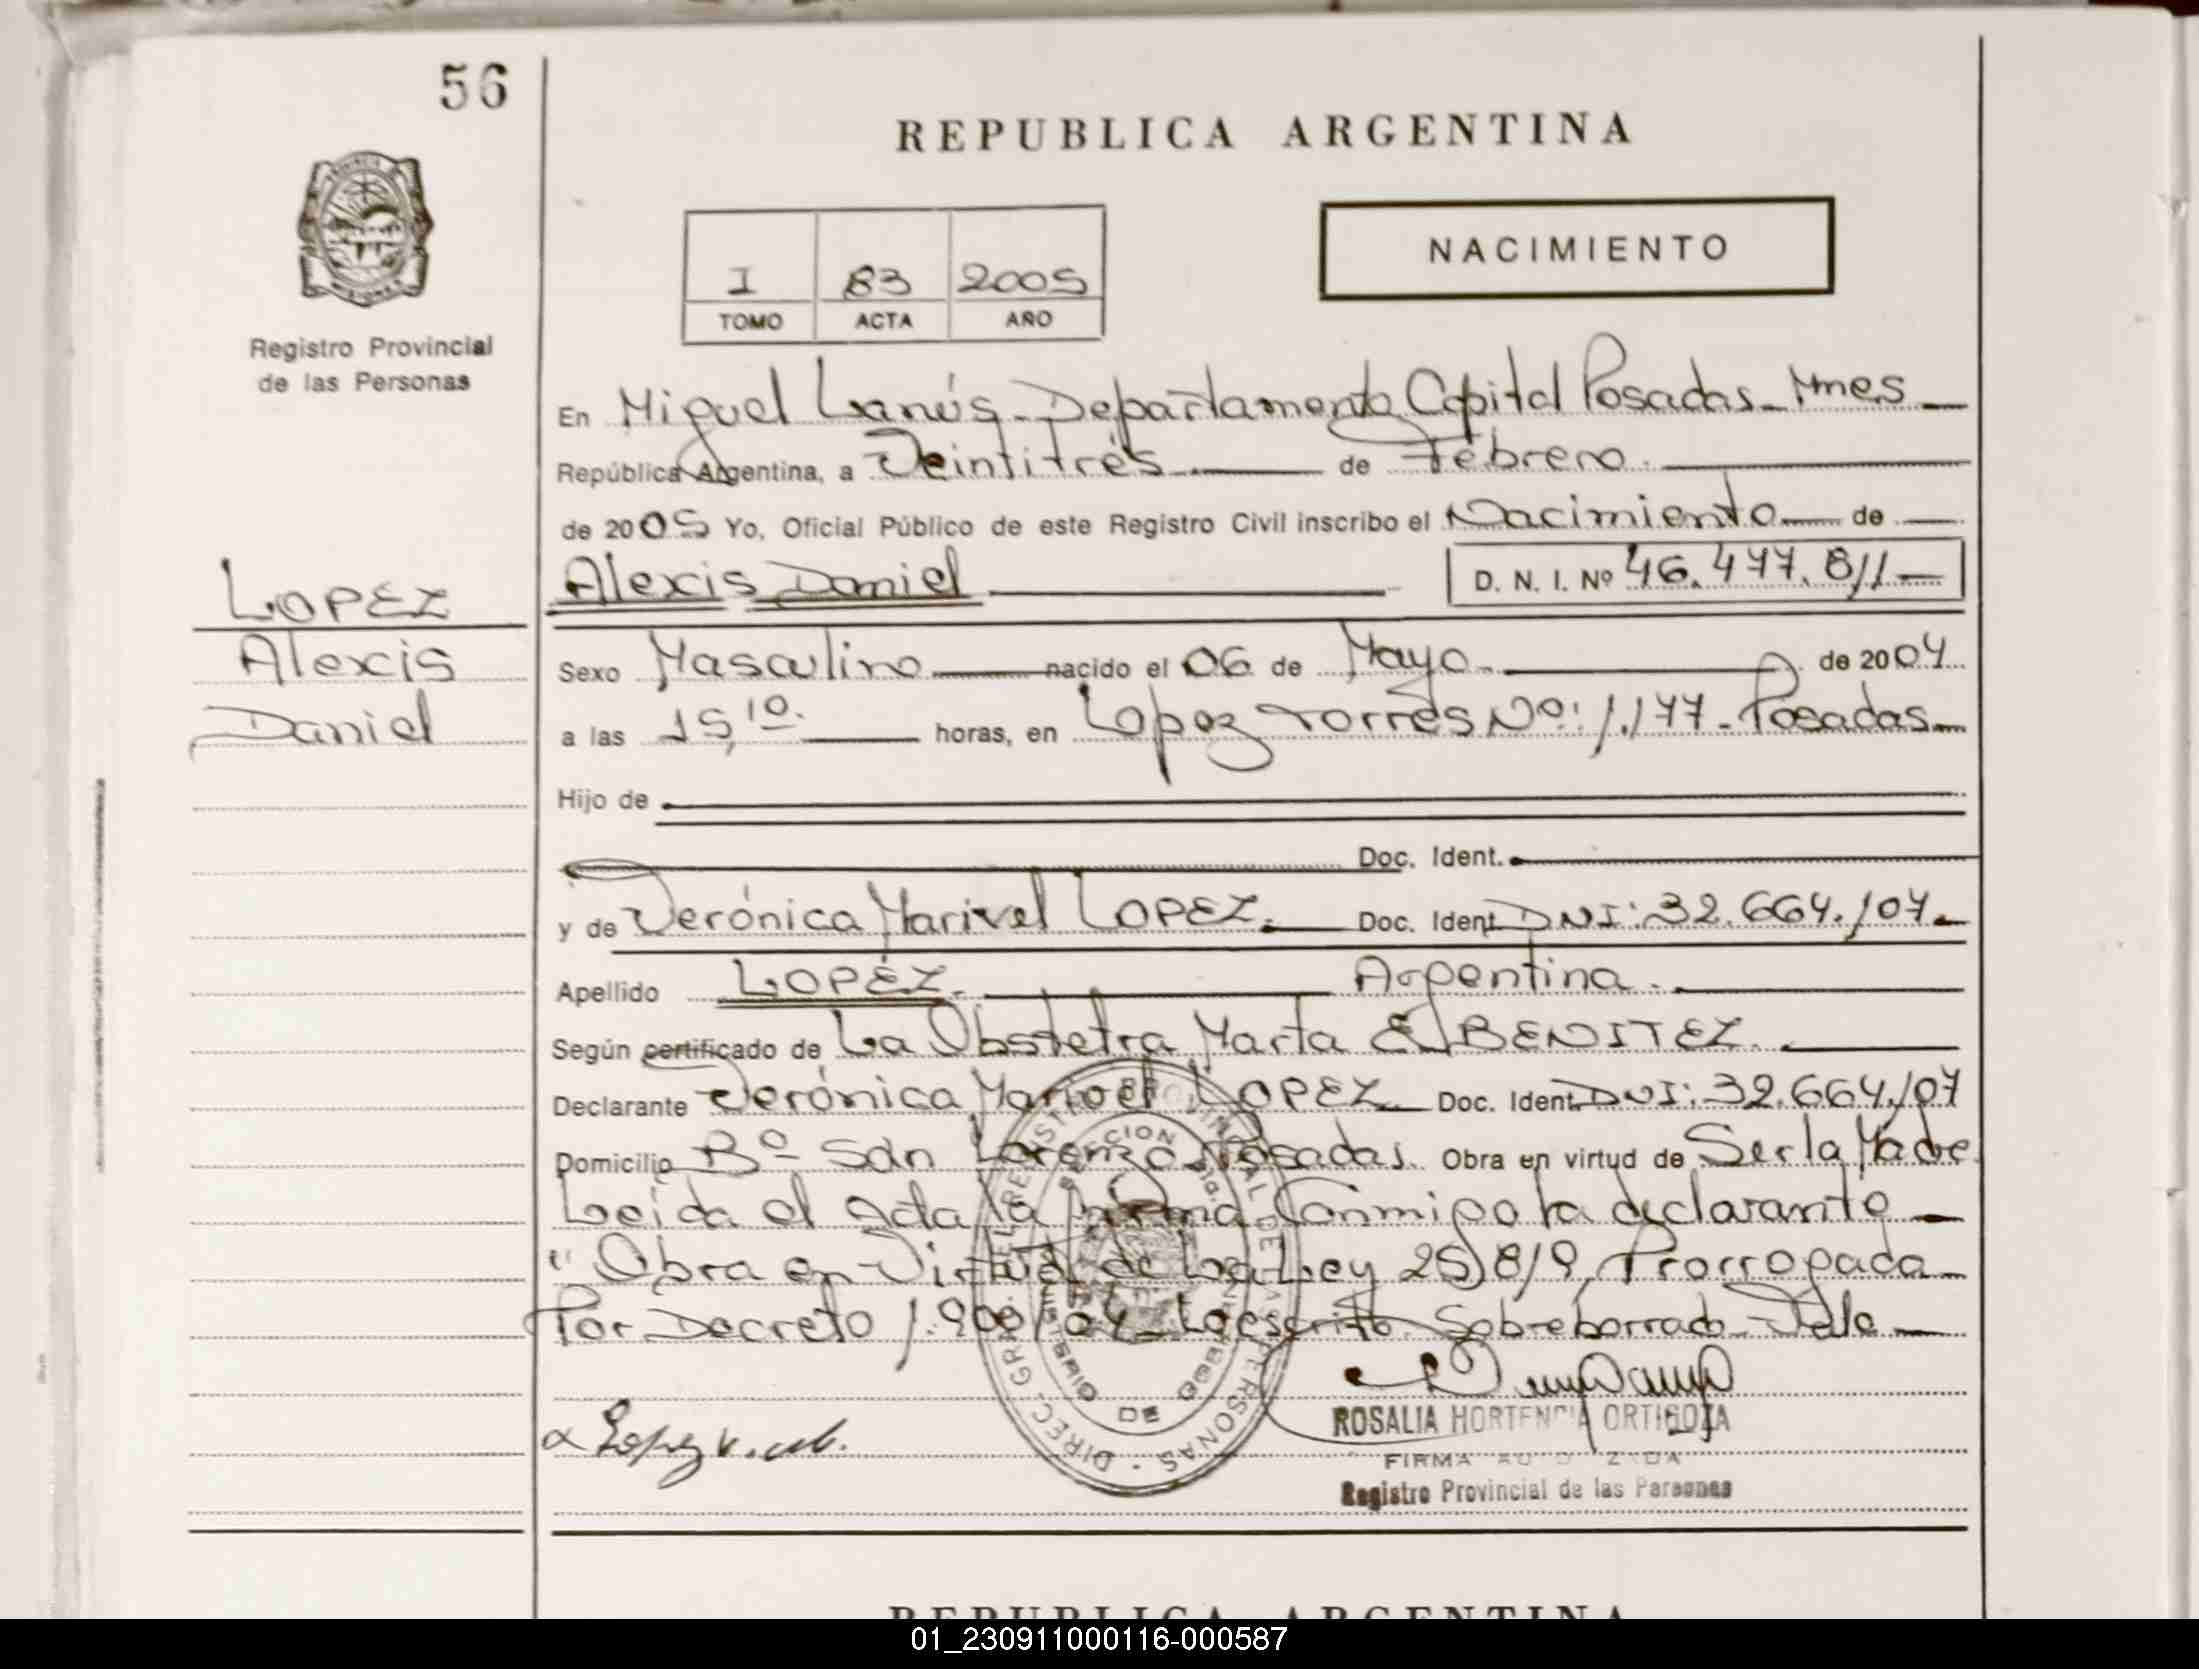 56
REPUBLICA ARGENTINA
NACIMIENTO
I 83 2005
TOMO ACTA AÑO
Registro Provincial
de las Personas
En Miguel Lanús - Departamento Capital Posadas - Mnes
República Argentina, a Veintitrés de Febrero.
de 2005 Yo, Oficial Público de este Registro Civil inscribo el Nacimiento de
Alexis Daniel D. N. I. Nº 46.477.811
LOPEZ
Alexis
Daniel
Sexo Masculino nacido el 06 de Mayo de 2004
a las 15,10. horas, en Lopez Torres Nº: 1.177 - Posadas
Hijo de
Doc. Ident.
y de Verónica Marivel LOPEZ. Doc. Ident. DNI: 32.664.107.
Apellido LOPEZ. Argentina.
Según certificado de La Obstetra Marta E. BENITEZ.
Declarante Verónica Marivel LOPEZ Doc. Ident. DNI: 32.664.107
Domicilio Bº San Lorenzo Posadas. Obra en virtud de Ser la Madre
Leída el acta la firma Conmigo la declarante
"Obra en Virtud de la Ley 25.819, Prorrogada
Por Decreto 1.900/04 - Lo escrito Sobreborrado Vale
Lopez v. m.
ROSALIA HORTENCIA ORTIGOZA
FIRMA AUTORIZADA
Registro Provincial de las Personas
REPUBLICA ARGENTINA
01_230911000116-000587